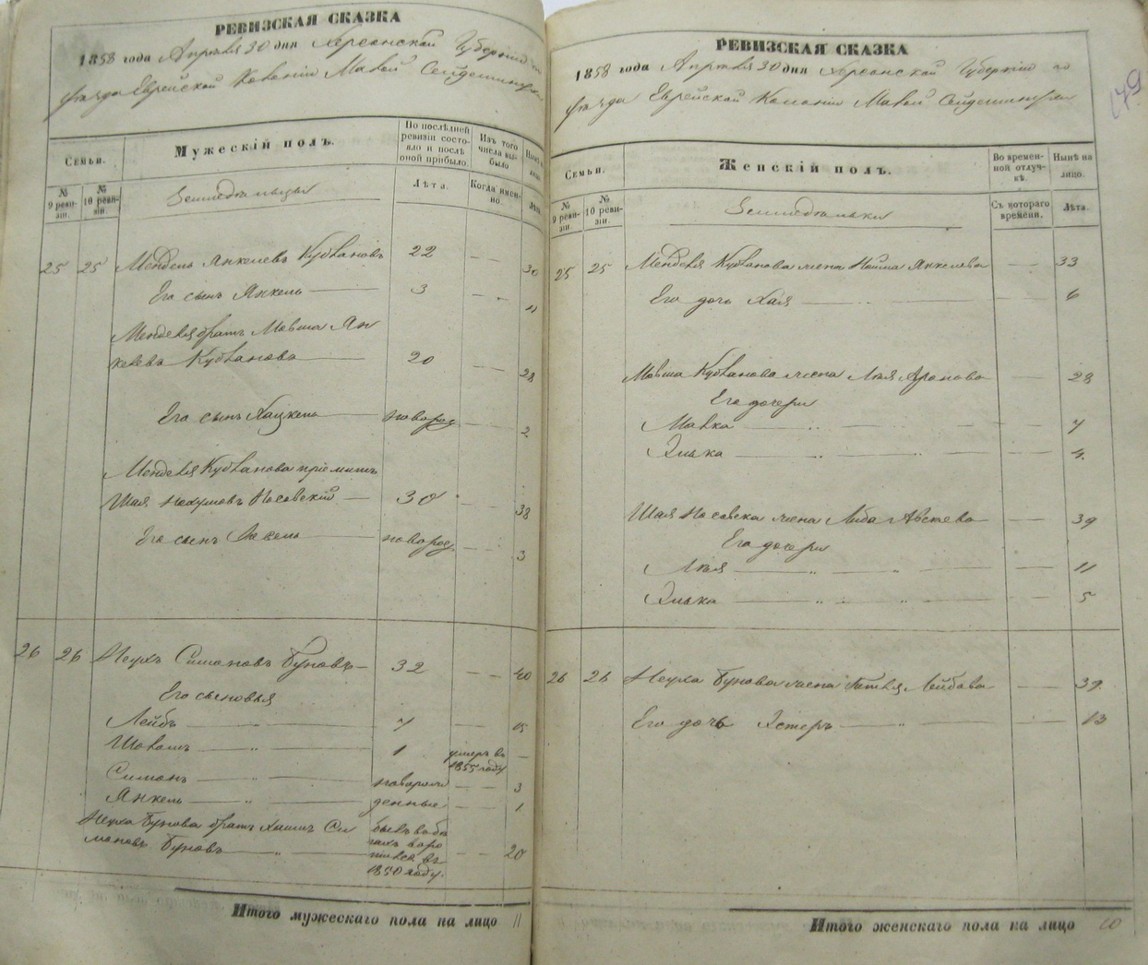 РЕВИЗСКАЯ СКАЗКА
1858 года Апреля 30 дня Херсонской Губернии
уезда Еврейской Колонии Малой Сейдеминухи
Семьи.
Мужескій полъ.
По последней ревизіи состояло и после оной прибыло.
Изъ того числа выбыло
№ 9 ревизіи.
№ 10 ревизіи.
Земледельцы
Лѣта.
Когда именно.
25 25 Мендель Янкелевъ Кубланов 22 — — 30
Его сынъ Янкель — 3 — — 11
Менделя братъ Мовша Ян
келевъ Кубланова — 20 — — 28
Его сынъ Хацкель новорож — — 2
Менделя Кубланова пріемышъ
Шая Нохумовъ Носовскій — 30 — — 38
Его сынъ новорож. — — 3
26 26 Симоновъ Буновъ — 32 — — 40
Его сыновья
Лейбъ — " — 7 — — 15
— " — 1 умеръ въ 1855 году —
Симонъ — " — новорож — — 3
Янкель — " — денные — — 1
Бунова братъ Си
моновъ Буновъ — бывъ въ бегахъ воротился въ 1850 году. — — 20
Итого мужескаго пола на лицо 11
РЕВИЗСКАЯ СКАЗКА
1858 года Апреля 30 дня Херсонской Губерніи
уезда Еврейской Колоніи Малой Сейдеминухи
179
Семьи.
Женскій полъ.
Во временной отлучкѣ.
Нынѣ на лицо.
№ 9 ревизіи.
№ 10 ревизіи.
Земледельки
Съ котораго времени.
Лѣта.
25 25 Менделя Кубланова жена Янкелева — 33
Его дочь Хая — — 6
Мовша Кубланова жена Лея Аронова — 28
Его дочери
Малка — " — " — 7
Элька — " — " — 4
Шая Носовска жена Либа — 39
Его дочери
Лея — " — " — 11
Элька — " — " — 5
26 26 Бунова жена Лейбова — 39
Его дочь Эстеръ — " — 13
Итого женскаго пола на лицо 10